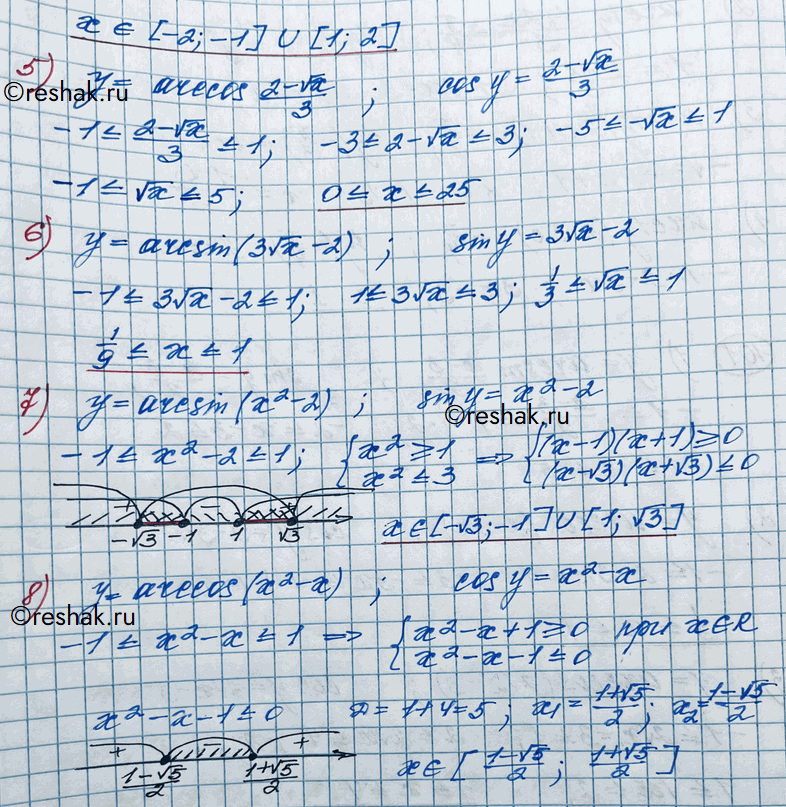 x ∈ [-2; -1] ∪ [1; 2]
5) y = arccos (2-√x)/3 ; cos y = (2-√x)/3
©reshak.ru
-1 ≤ (2-√x)/3 ≤ 1; -3 ≤ 2-√x ≤ 3; -5 ≤ -√x ≤ 1
-1 ≤ √x ≤ 5; 0 ≤ x ≤ 25
6) y = arcsin(3√x - 2) ; sin y = 3√x - 2
-1 ≤ 3√x - 2 ≤ 1; 1 ≤ 3√x ≤ 3; 1/3 ≤ √x ≤ 1
1/9 ≤ x ≤ 1
7) y = arcsin(x² - 2) ; sin y = x² - 2
©reshak.ru
-1 ≤ x² - 2 ≤ 1; { x² ≥ 1 ⇒ { (x-1)(x+1) ≥ 0
x² ≤ 3 (x-√3)(x+√3) ≤ 0
+ - +
-√3 -1 1 √3 x ∈ [-√3; -1] ∪ [1; √3]
8) y = arccos(x² - x) ; cos y = x² - x
©reshak.ru
-1 ≤ x² - x ≤ 1 ⇒ { x² - x + 1 ≥ 0 при x ∈ R
x² - x - 1 ≤ 0
x² - x - 1 ≤ 0 D = 1+4 = 5 ; x₁ = (1+√5)/2 ; x₂ = (1-√5)/2
+ - +
(1-√5)/2 (1+√5)/2 x ∈ [ (1-√5)/2 ; (1+√5)/2 ]